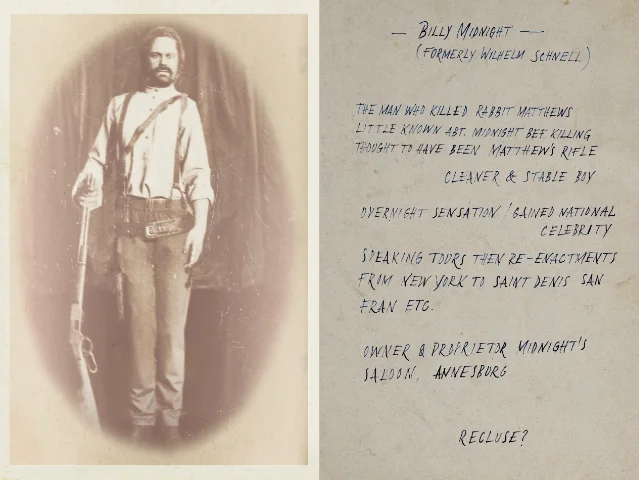 — BILLY MIDNIGHT —
(FORMERLY WILHELM SCHNELL)
THE MAN WHO KILLED RABBIT MATTHEWS
LITTLE KNOWN ABT. MIDNIGHT BEF KILLING
THOUGHT TO HAVE BEEN MATTHEW'S RIFLE
CLEANER & STABLE BOY
OVERNIGHT SENSATION / GAINED NATIONAL
CELEBRITY
SPEAKING TOURS THEN RE-ENACTMENTS
FROM NEW YORK TO SAINT DENIS SAN
FRAN ETC.
OWNER & PROPRIETOR MIDNIGHT'S
SALOON, ANNESBURG
RECLUSE?